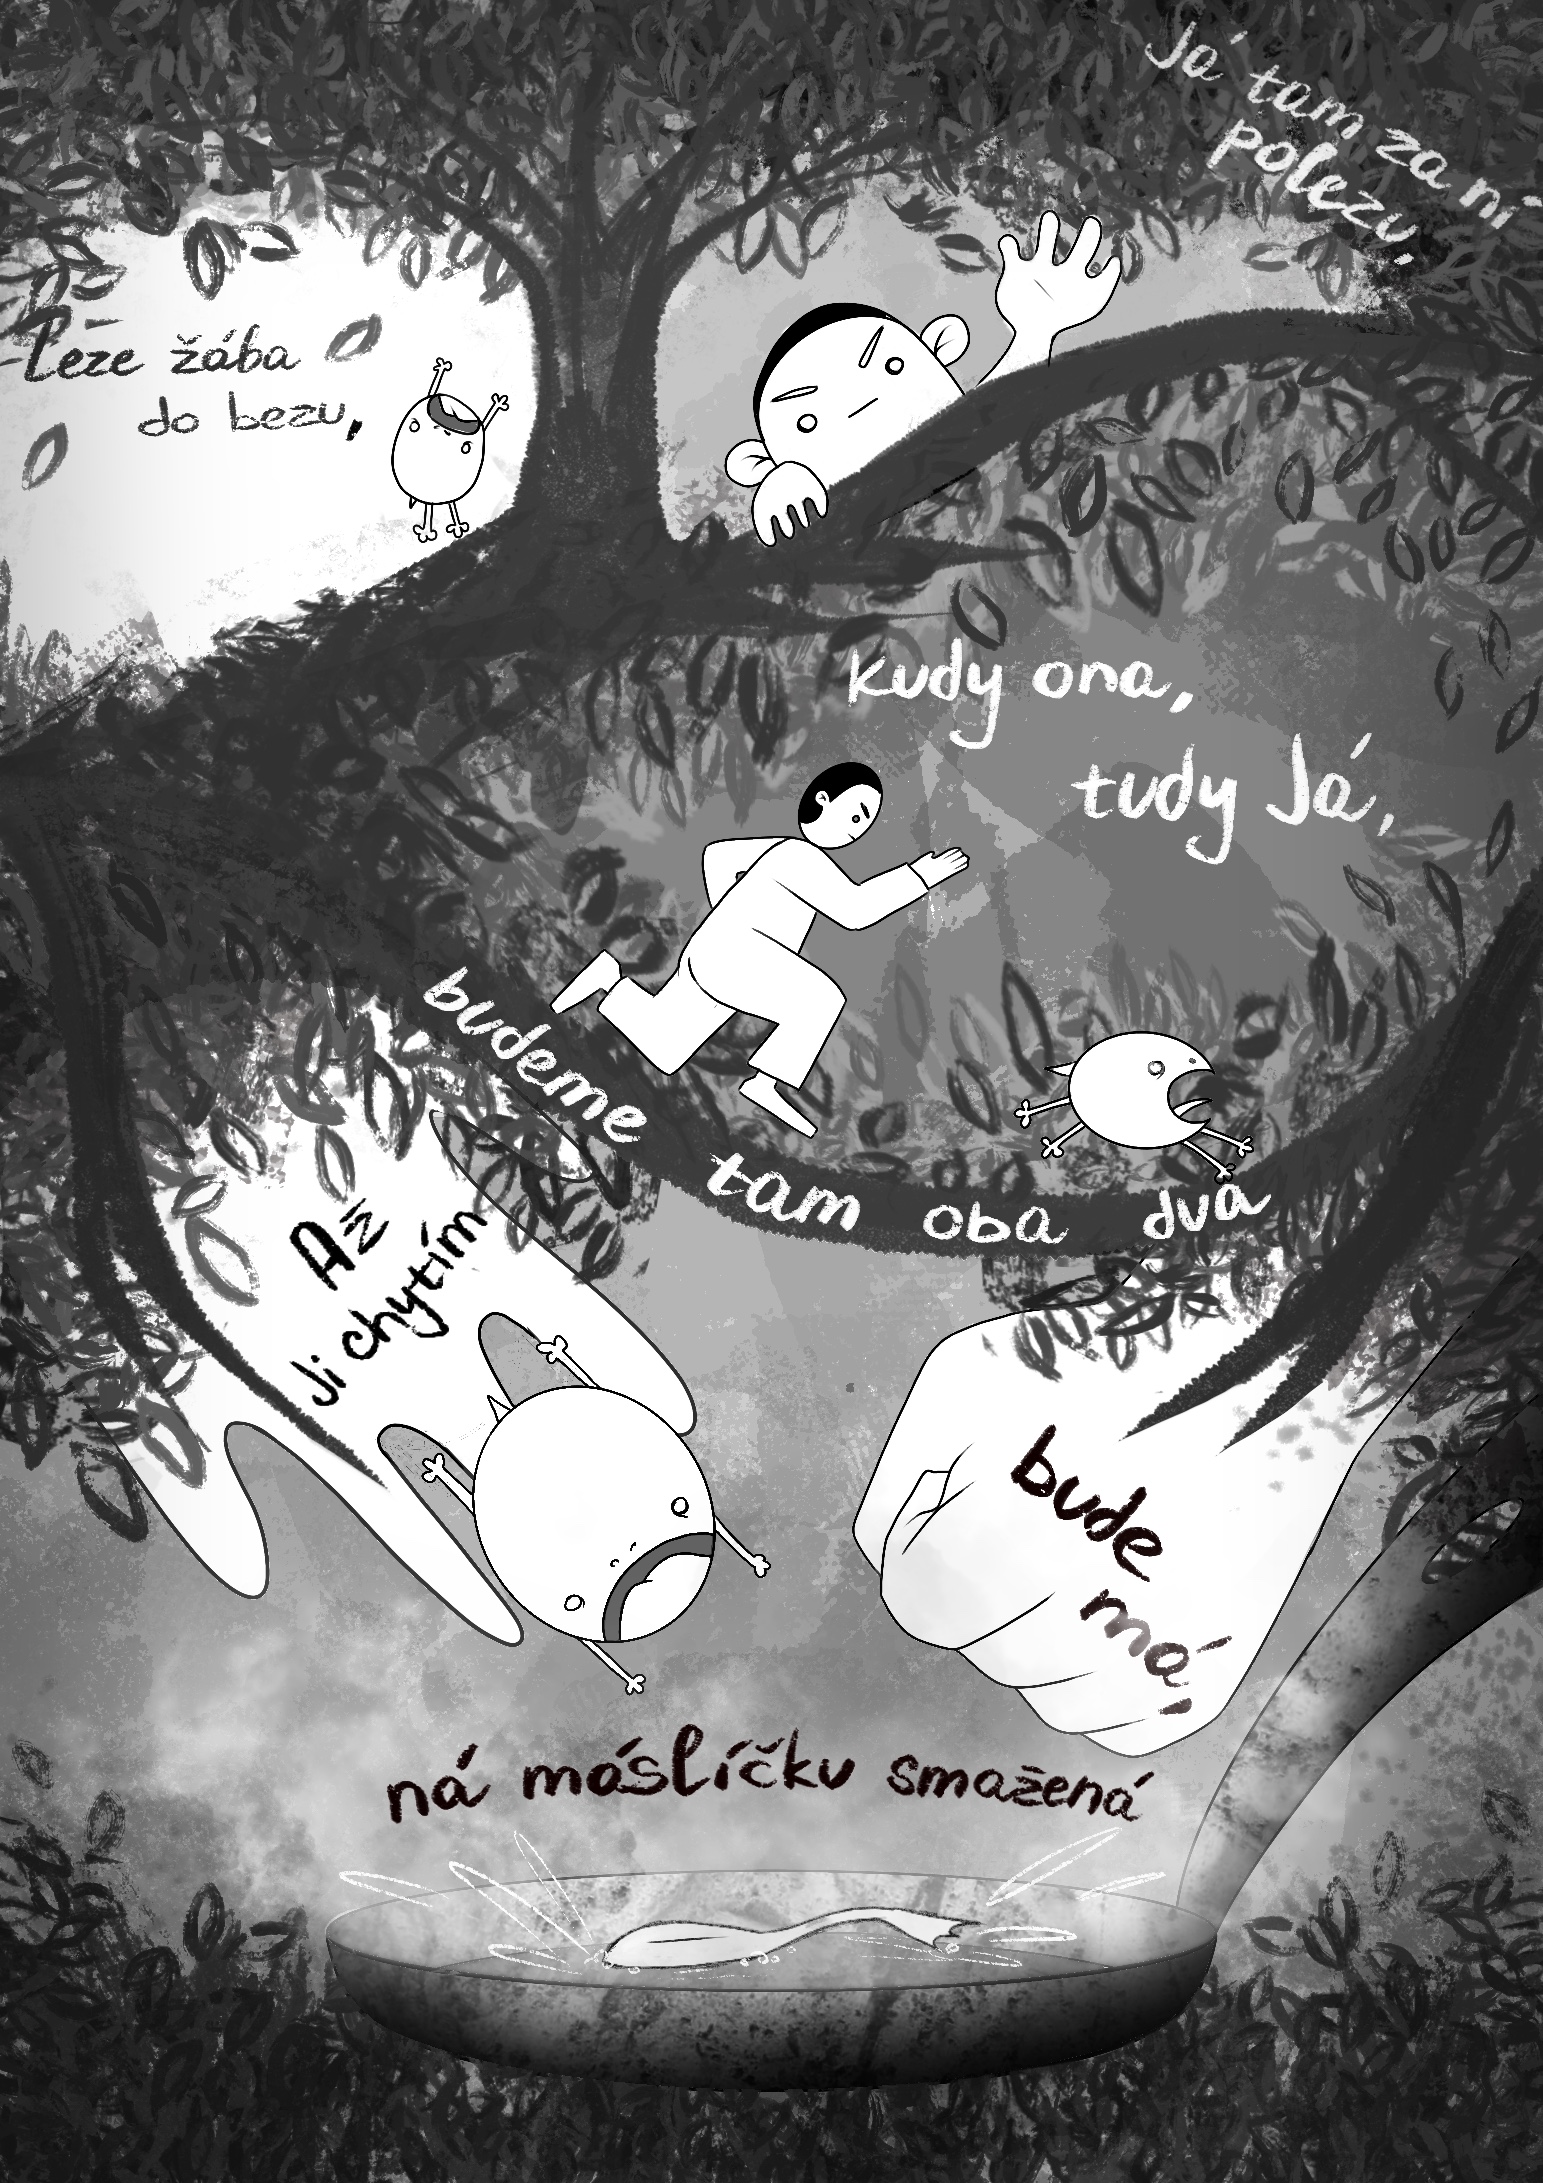 Leze žába
do bezu,
Já tam za ní
polezu,
kudy ona,
tudy Já,
budeme tam oba dva
Až
Ji chytím
bude
má,
ná máslíčku smažená